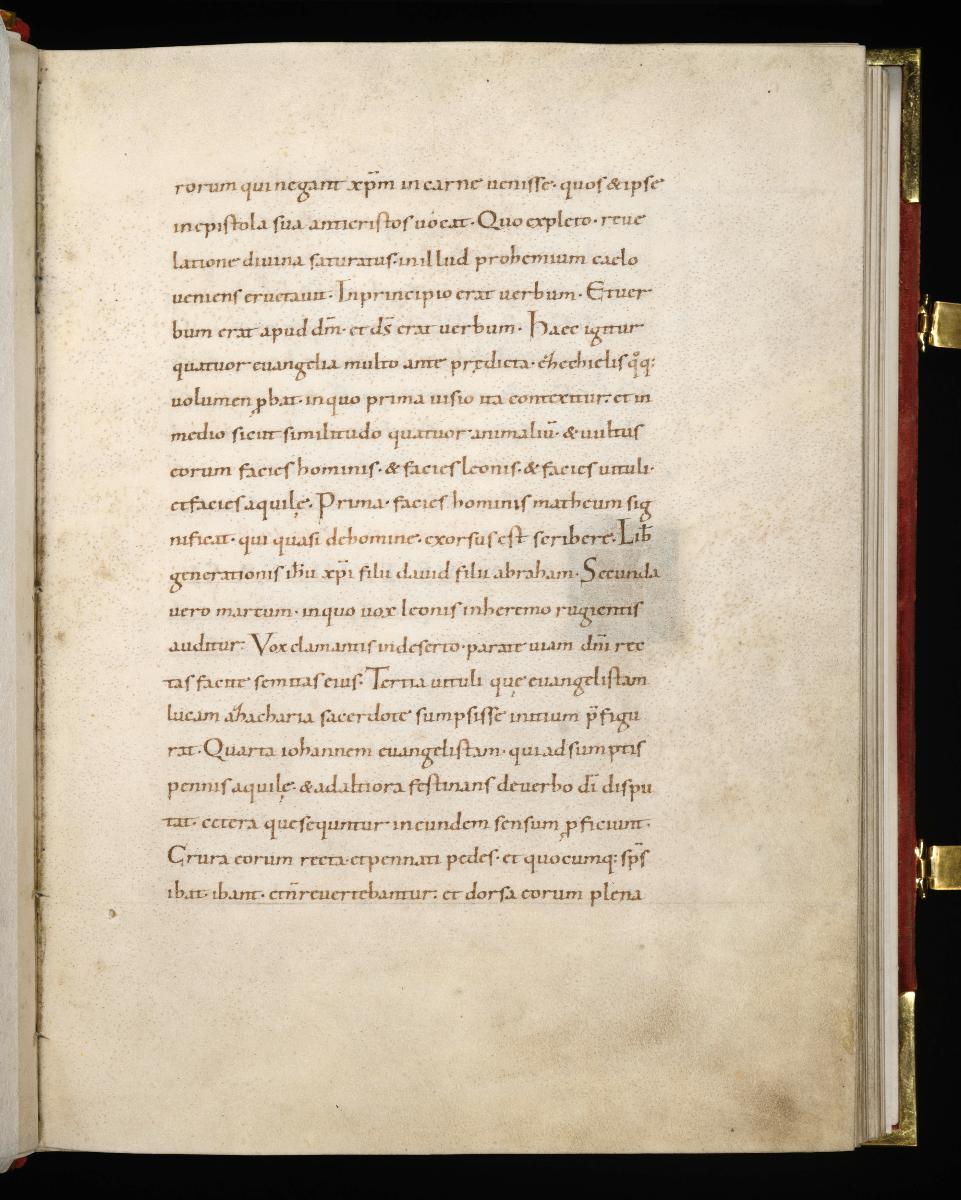 rorum qui negant xp̄m in carne uenisse· quos & ipse
in epistola sua anticristos uócat· Quo expleto· reue
latione diuina saturatus· in illud prohemium caelo
ueniens eructauit· In principio erat uerbum· Et uer
bum erat apud dm̄· et ds̄ erat uerbum· Haec igitur
quatuor euangelia multo ante prędicta· ezhechielis q°q:
uolumen ꝓbat· in quo prima uisio ita contexitur: et in
medio sicut similitudo quatuor animaliū· & uultus
eorum facies hominis· & facies leonis· & facies uituli·
et facies aquilę· Prima· facies hominis matheum sig
nificat· qui quasi de homine· exorsus est scribere· Lib̄
generationis ih̄u xp̄i filii dauid filii abraham· Secunda
uero marcum· in quo uox leonis in heremo rugientis
auditur: Vox clamantis in deserto· parate uiam dn̄i rec
tas facite semitas eius· Tertia uituli quę euangelistam
lúcam a zhacharia sacerdote sumpsisse initium p̄figu
rat· Quarta iohannem euangelistam· qui adsumptis
pennis aquilę· & ad altiora festinans de uerbo dī dispu
tat· cetera que sequntur in eundem sensum ꝓficiunt·
Crura eorum recta· et pennati pedes· et quocumq: sp̄s
ibat· ibant· et n̄ reuertebantur: et dorsa eorum plena